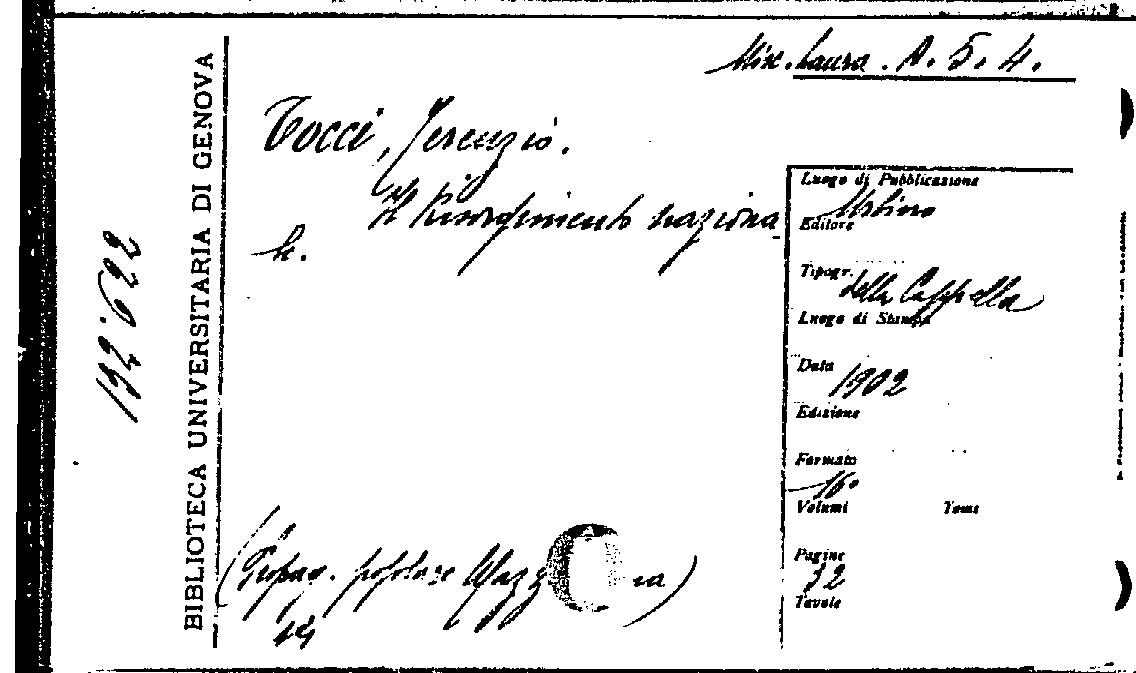 Misc. Laura. A. 5. 4.
BIBLIOTECA UNIVERSITARIA DI GENOVA
192622
Tocci, Terenzio.
Il Risorgimento naziona
le.
Luogo di Pubblicazione
Urbino
Editore
Tipogr.
della Cappella
Luogo di Stampa
Data
1902
Edizione
Formato
16°
Volumi Tomi
Pagine
32
Tavole
(Propag. popolare Mazz na)
14